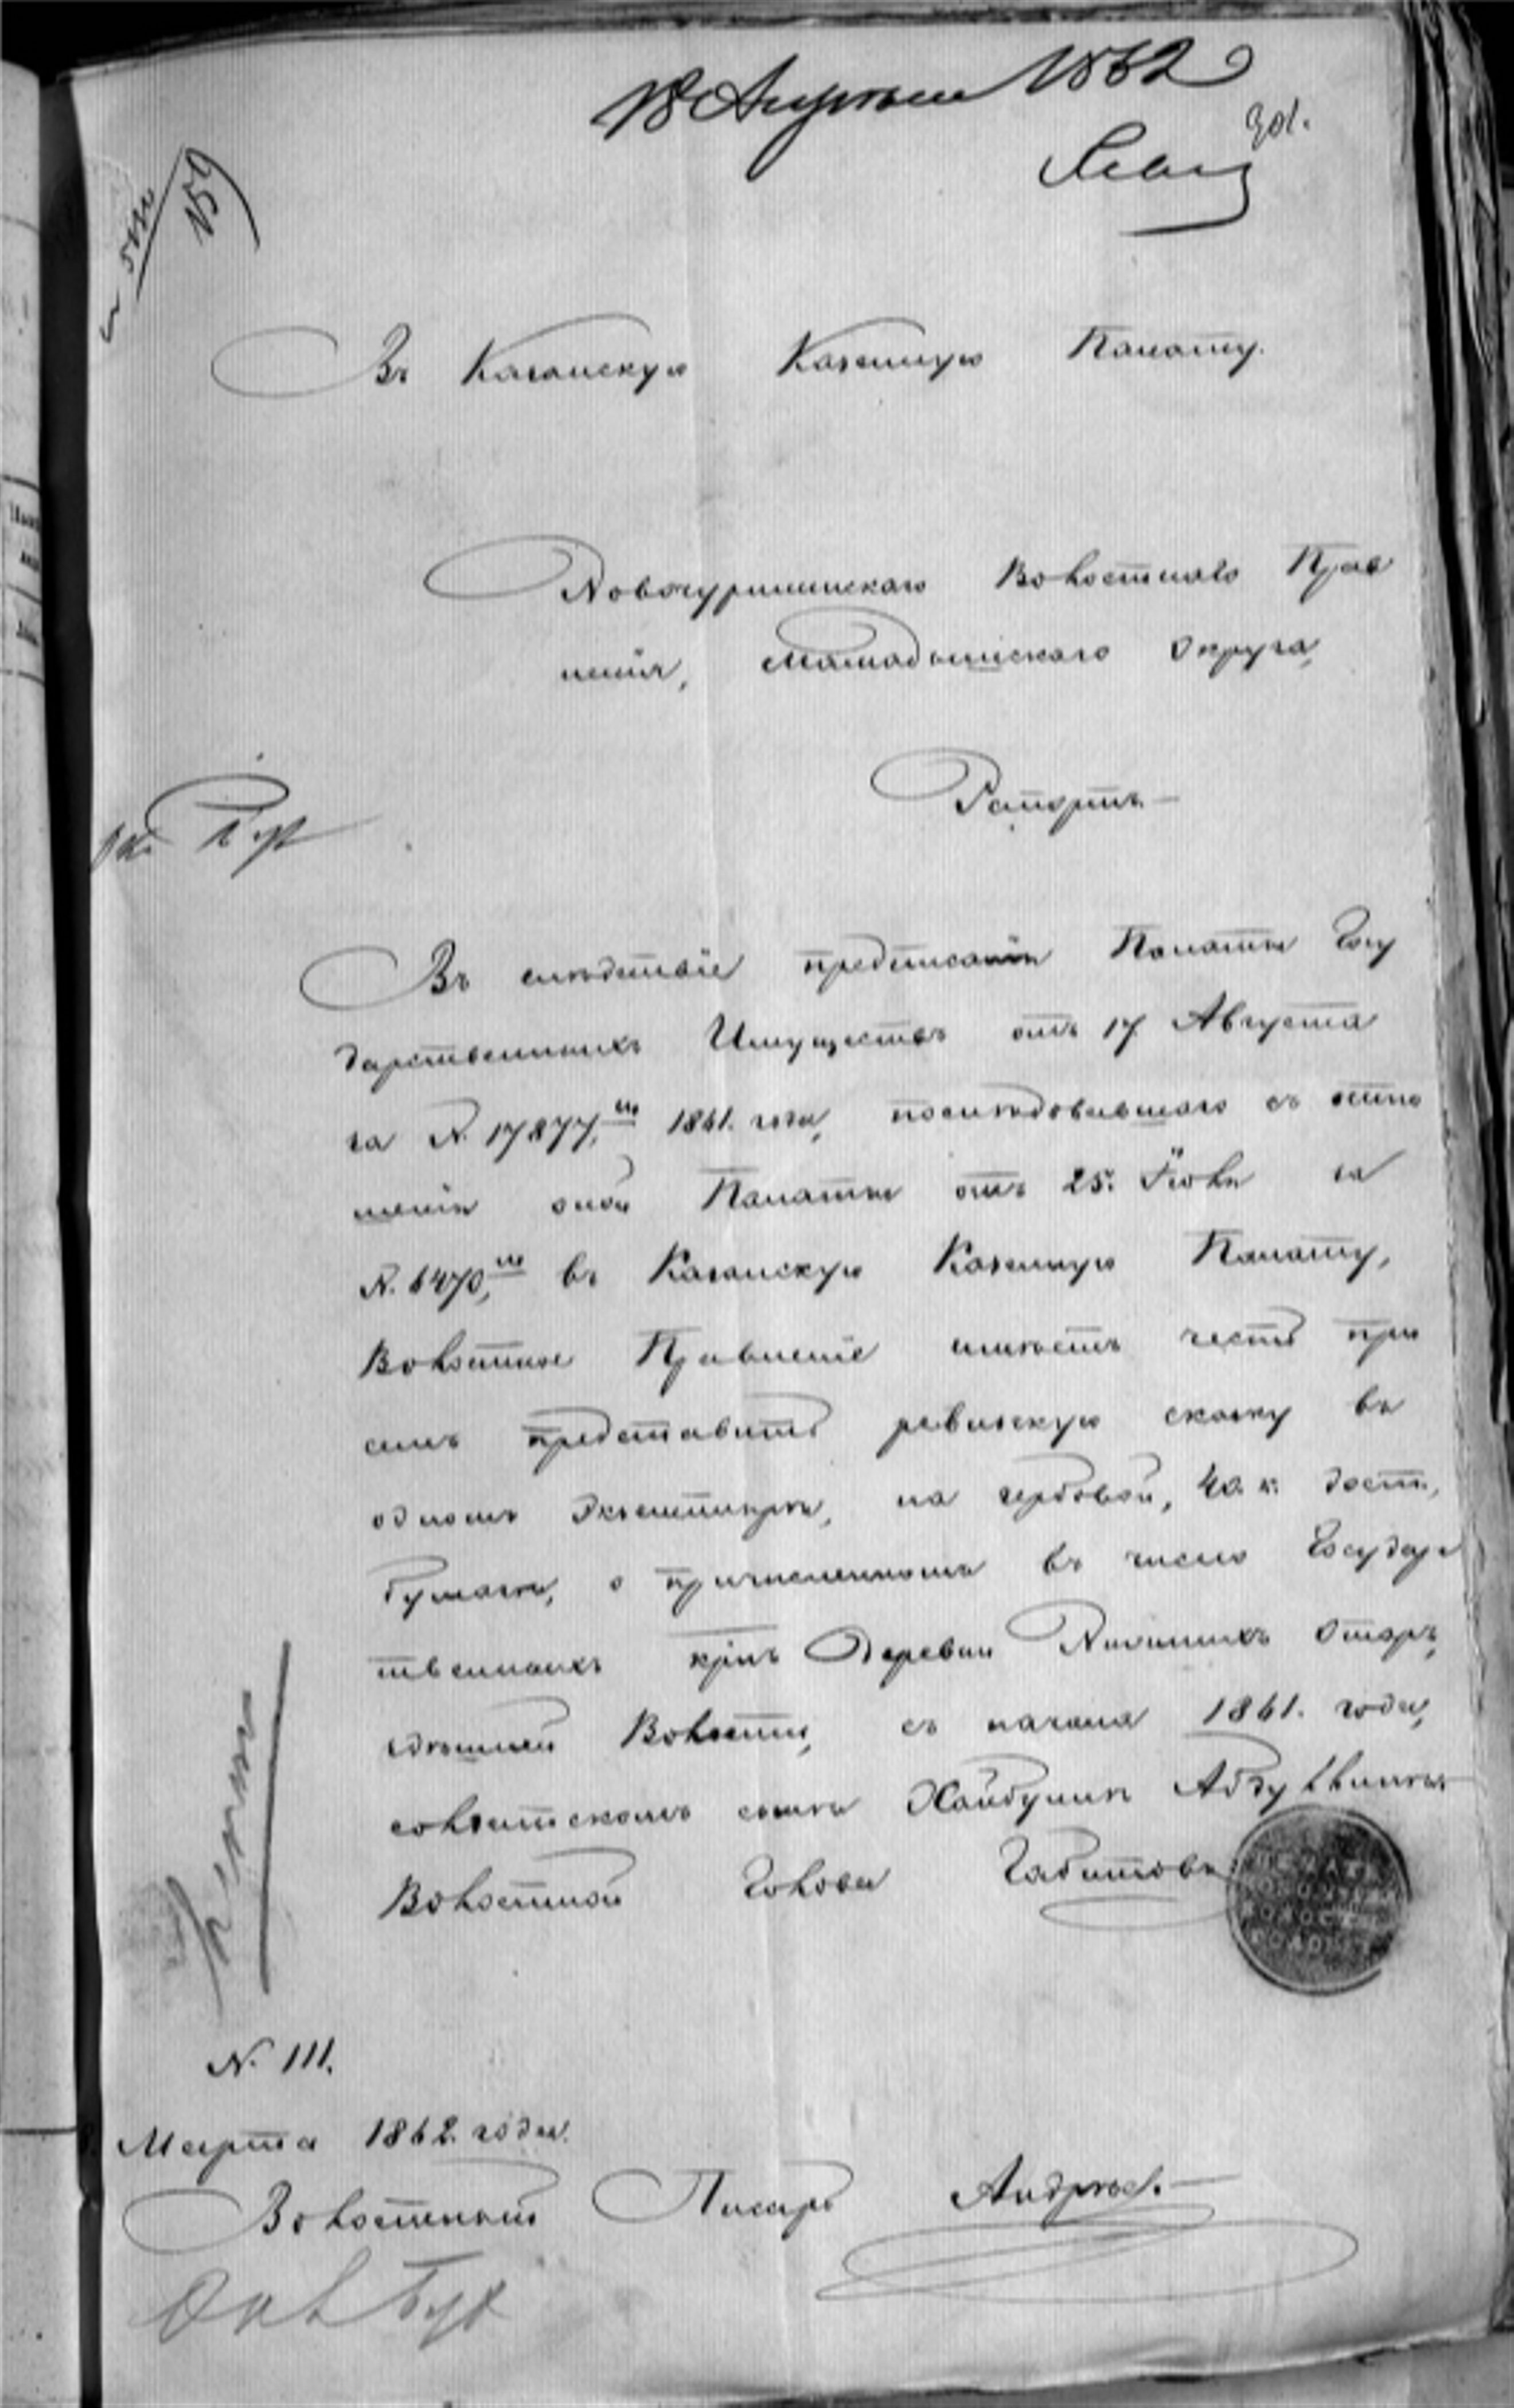 18 Апреля 1862
901.
159
Въ Казанскую Казенную Палату.
Новочурилинскаго Волостнаго Прав
ленія, Мамадышскаго Округа,
Рапортъ
Въ слѣдствіе предписанія Палаты Госу
дарственныхъ Имуществъ отъ 17 Августа
за N. 17877,мъ 1861. года, послѣдовавшаго съ отно
шенія оной Палаты отъ 25. Іюля за
N. 6470,мъ въ Казанскую Казенную Палату,
Волостное Правленіе имѣетъ честь при
семъ представить ревизскую скаску въ
одномъ Экземплярѣ, на гербовой, 40. к. дост.,
бумагѣ, о причисленномъ въ число Государ
ственныхъ крнъ Деревни Отаръ,
здѣшней Волости, съ начала 1861. года,
солдатскомъ сынѣ Хайбуллѣ
Волостной Голова Габитовъ
N. 111.
Марта 1862. года.
Волостный Писарь